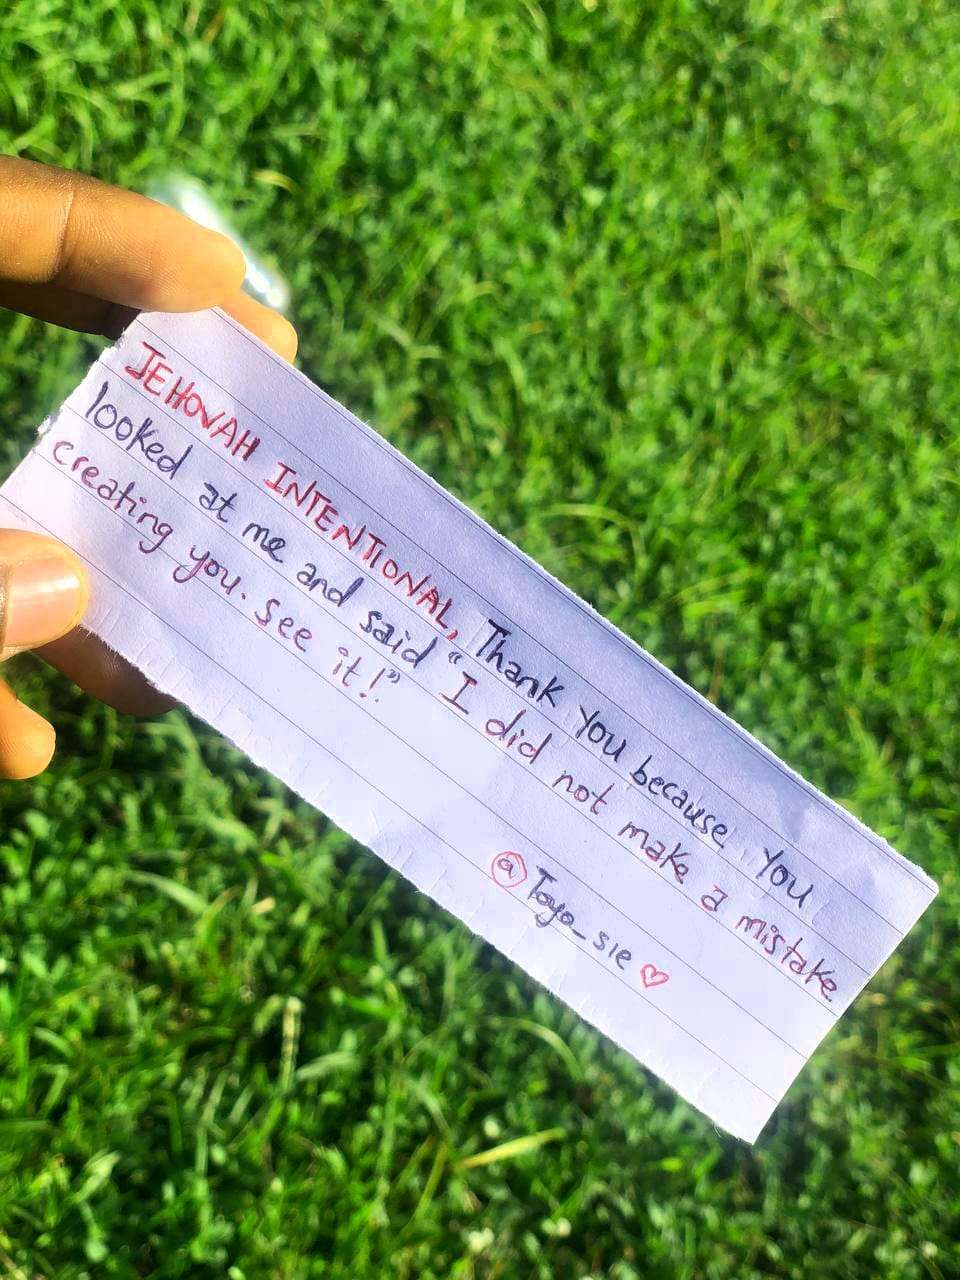 JEHOVAH INTENTIONAL, Thank You because You
looked at me and said "I did not make a mistake
creating you. See it!"
@Toyo_sie